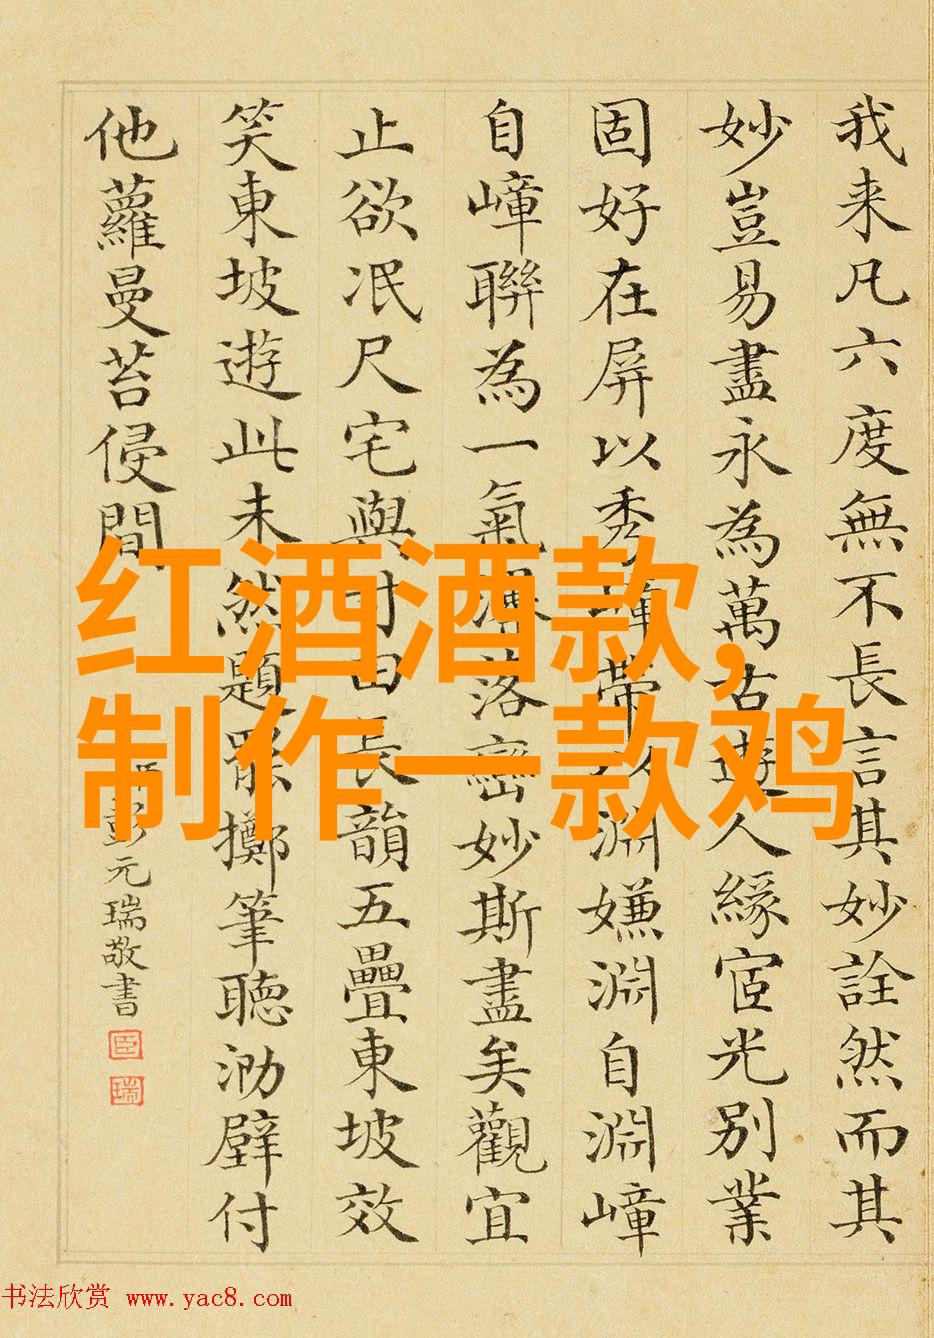 我来凡六度無不長言其妙詮然而其
妙豈易盡永為萬古遊人緣宧光別業
固好在屏以秀嶂帶淵嫌淵自淵嶂
自嶂聯為一氣渾落巒妙斯盡矣觀宜
止欲泯尺宅與寸田長韻五疊東坡效
笑東坡遊此未然題罷擲筆聽泐壁付
他蘿蔓苔侵間
彭元瑞敬書
臣
瑞
红酒酒款,
制作一款鸡
书法欣赏 www.yac8.com